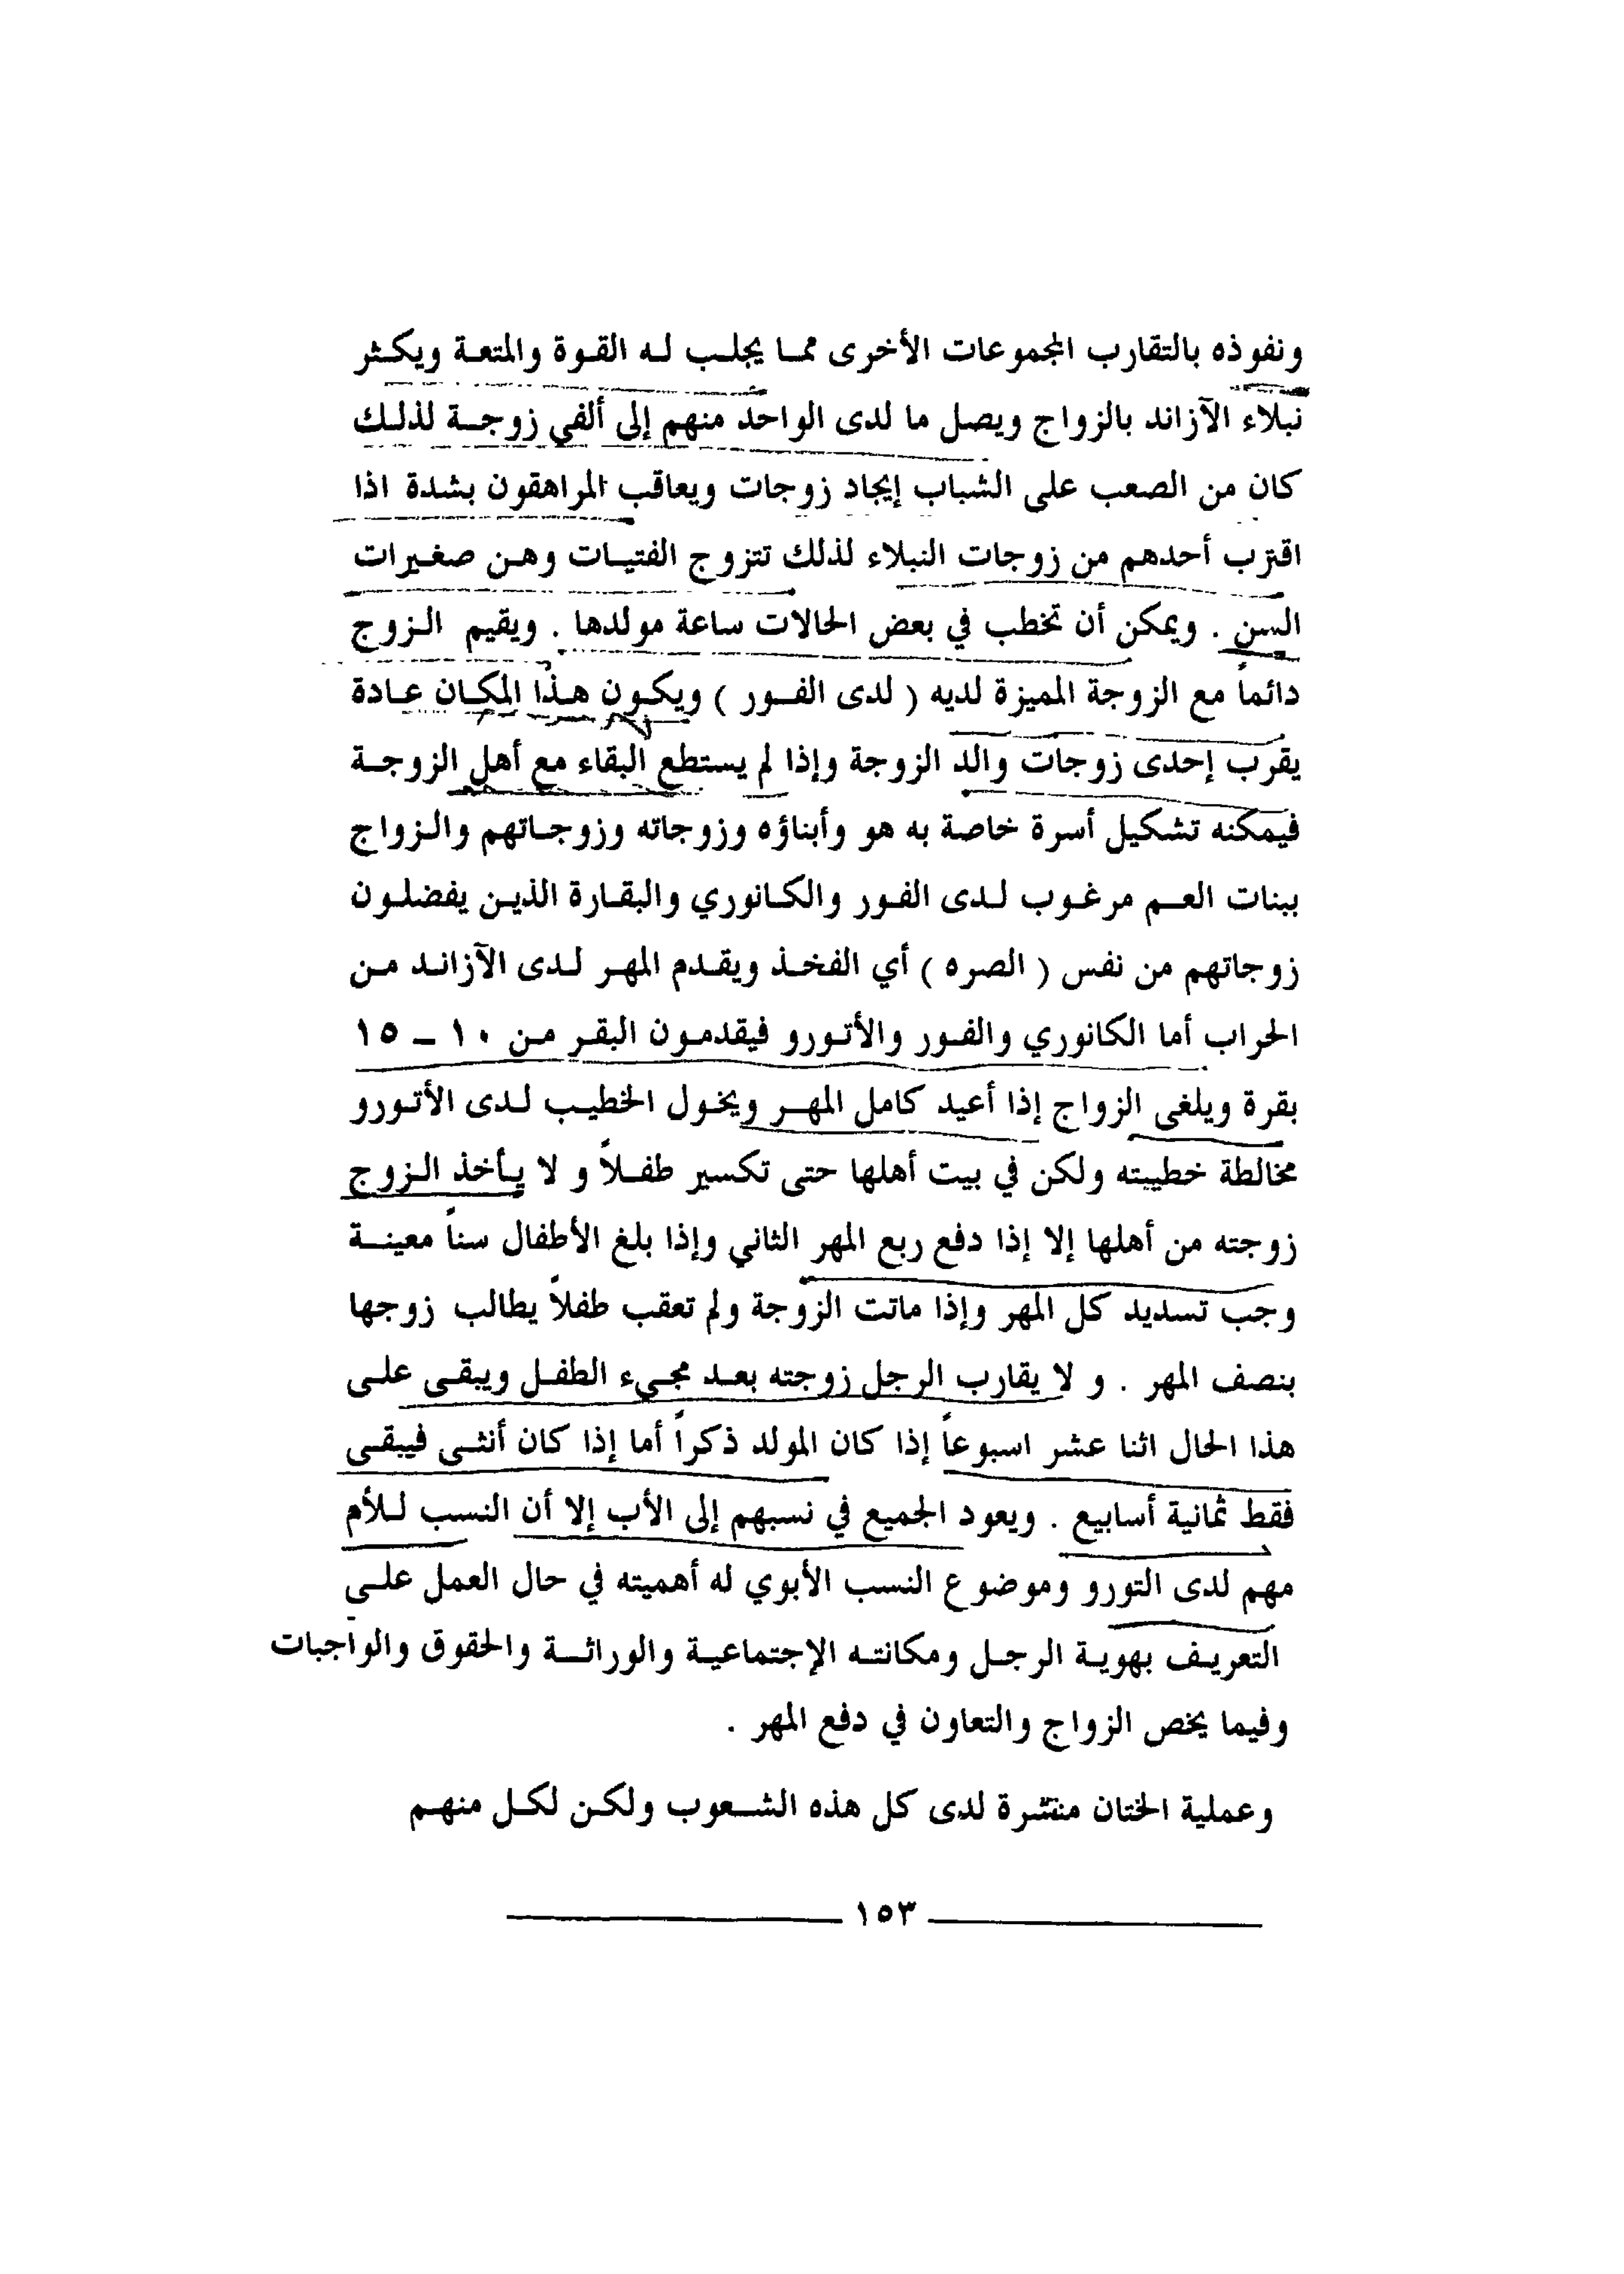 ونفوذه بالتقارب المجموعات الأخرى مما يجلب له القوة والمتعة ويكثر
نبلاء الآزاند بالزواج ويصل ما لدى الواحد منهم إلى ألفي زوجة لذلك
كان من الصعب على الشباب إيجاد زوجات ويعاقب المراهقون بشدة اذا
اقترب أحدهم من زوجات النبلاء لذلك تتزوج الفتيات وهن صغيرات
السن . ويمكن أن تخطب في بعض الحالات ساعة مولدها . ويقيم الزوج
دائماً مع الزوجة المميزة لديه ( لدى الفور ) ويكون هذا المكان عادة
يقرب إحدى زوجات والد الزوجة وإذا لم يستطع البقاء مع أهل الزوجة
فيمكنه تشكيل أسرة خاصة به هو وأبناؤه وزوجاته وزوجاتهم والزواج
ببنات العم مرغوب لدى الفور والكانوري والبقارة الذين يفضلون
زوجاتهم من نفس ( الصره ) أي الفخذ ويقدم المهر لدى الآزاند من
الحراب أما الكانوري والفور والأتورو فيقدمون البقر من ١٠ – ١٥
بقرة ويلغى الزواج إذا أعيد كامل المهر ويخول الخطيب لدى الأتورو
مخالطة خطيبته ولكن في بيت أهلها حتى تكسير طفلاً و لا يأخذ الزوج
زوجته من أهلها إلا إذا دفع ربع المهر الثاني وإذا بلغ الأطفال سناً معينة
وجب تسديد كل المهر وإذا ماتت الزوجة ولم تعقب طفلاً يطالب زوجها
بنصف المهر . و لا يقارب الرجل زوجته بعد مجيء الطفل ويبقى على
هذا الحال اثنا عشر اسبوعاً إذا كان المولد ذكراً أما إذا كان أنثى فيبقى
فقط ثمانية أسابيع . ويعود الجميع في نسبهم إلى الأب إلا أن النسب للأم
مهم لدى التورو وموضوع النسب الأبوي له أهميته في حال العمل على
التعريف بهوية الرجل ومكانته الإجتماعية والوراثة والحقوق والواجبات
وفيما يخص الزواج والتعاون في دفع المهر .
وعملية الختان منتشرة لدى كل هذه الشعوب ولكن لكل منهم
١٥٣